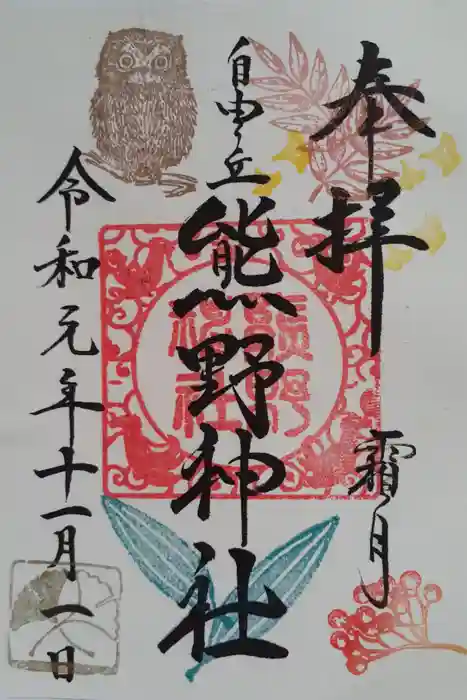 奉拝
霜月
自由ヶ丘
熊野神社
令和元年十一月一日